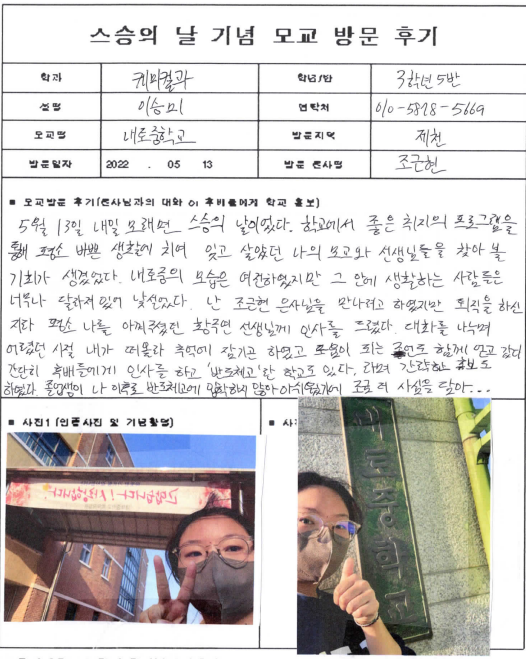 스승의 날 기념 모교 방문 후기
학과 케미컬과 학년/반 3학년 5반
성명 이승미 연락처 010-5878-5669
모교명 내토중학교 방문지역 제천
방문일자 2022 . 05 13 방문 은사명 조근현
■ 모교방문 후기(은사님과의 대화 이 후배들에게 학교 홍보)
5월 13일 내일 모래면 스승의 날이었다. 학교에서 좋은 취지의 프로그램을
통해 평소 바쁜 생활에 치여 잊고 살았던 나의 모교와 선생님들을 찾아 볼
기회가 생겼었다. 내토중의 모습은 여전하였지만 그 안에 생활하는 사람들은
너무나 달라져 있어 낯설었다. 난 조근현 은사님을 만나려고 하였지만 퇴직을 하신
지라 평소 나를 아껴주셨던 선생님께 인사를 드렸다. 대화를 나누며
어렸던 시절 내가 떠올라 추억에 잠기곤 하였고 도움이 되는 조언도 함께 얻고 갔다
간단히 후배들에게 인사를 하고 '반도체고'란 학교도 있다, 라며 간략하는 홍보도
하였다. 졸업생이 나 이후로 반도체고에 입학하지 않아 조금 더 사실을 담아...
■ 사진1 (인증사진 및 기념촬영)
■ 사